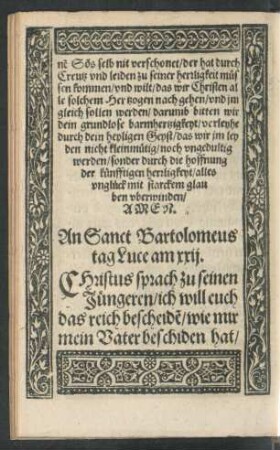 nẽ Sōs selb nit verschonet/der hat durch
Creutz vnd leiden zu seiner herrligkeit müs
sen kommen/vnd wilt/das wir Christen al
le solchem Hertzogen nach gehen/vnd im
gleich sollen werden/darumb bitten wir
dein grundlose barmhertzigkeyt/verleyhe
durch dein heyligen Geyst/das wir im ley
den nicht kleinmütig/noch vngedultig
werden/sonder durch die hoffnung
der künfftigen herrligkeyt/alles
vnglück mit starckem glau
ben vberwinden/
AMEN.
An Sanct Bartolomeus
tag Luce am xxij.
CHristus sprach zu seinen
Jüngeren/ich will euch
das reich bescheidẽ/wie mir
mein Vater beschiden hat/